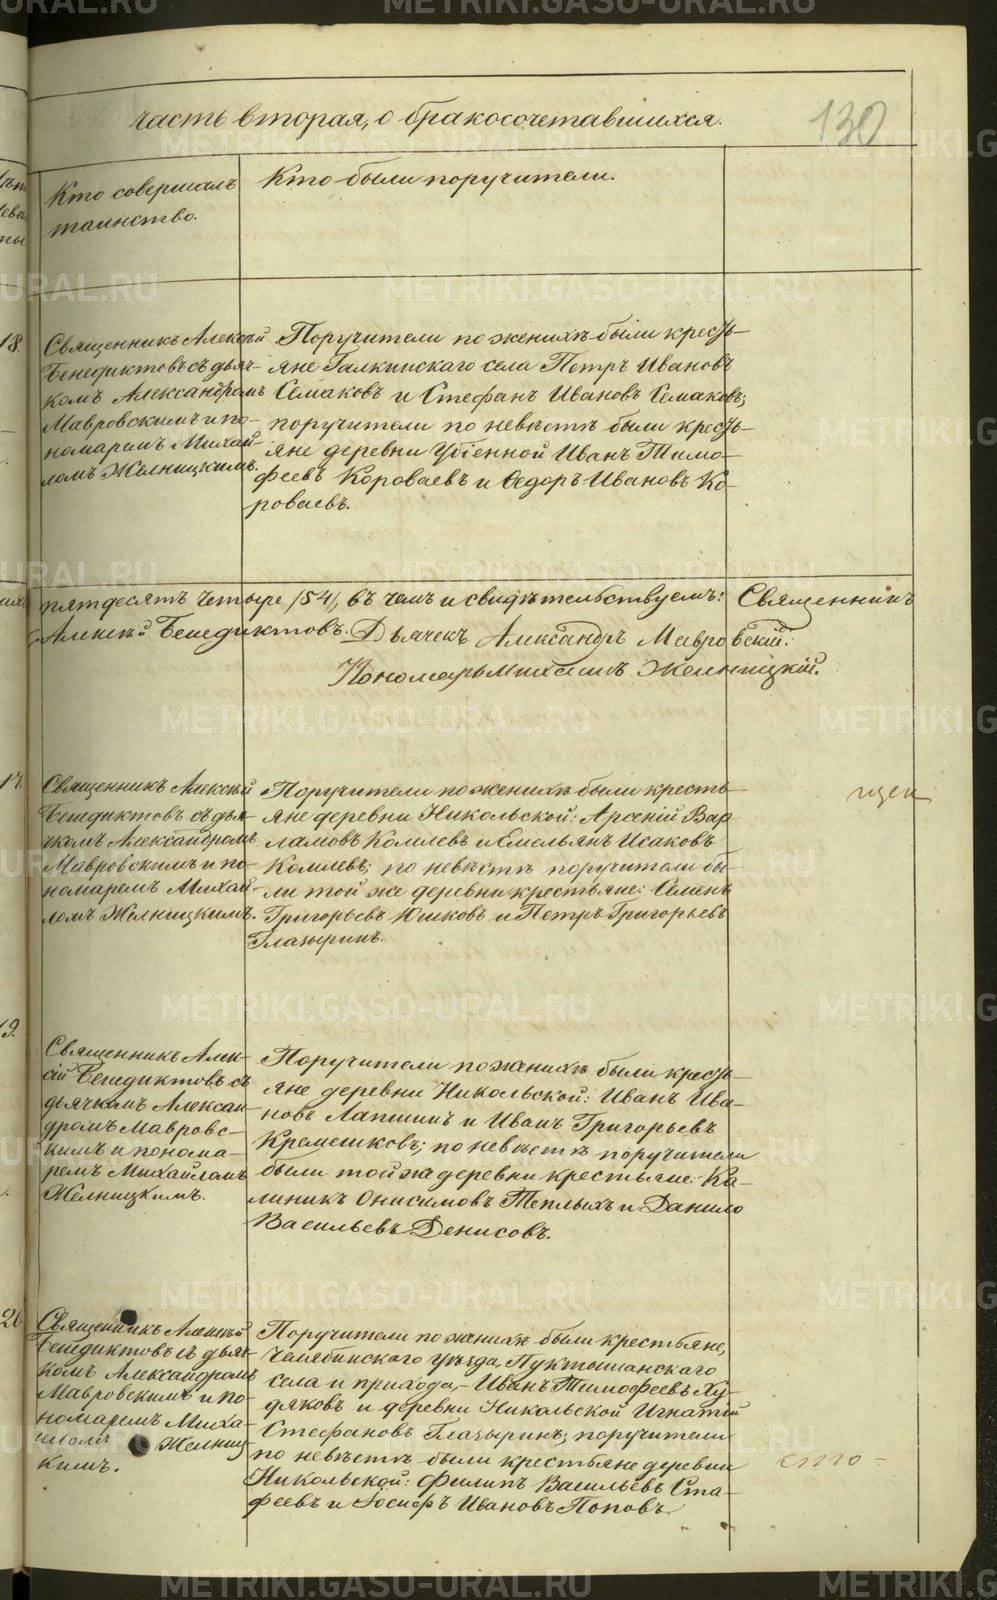 часть вторая, о бракосочетавшихся.
130
Кто совершалъ
таинство.
Кто были поручители.
18.
Священникъ Алексѣй
Бенедиктовъ съ дьяч-
комъ Александромъ
Мавровскимъ и по-
номаремъ Михаи-
ломъ Желницкимъ.
Поручители по женихѣ были кресть-
яне Галкинскаго села Петръ Ивановъ
Семаковъ и Стефанъ Ивановъ Семаковъ;
поручители по невѣстѣ были кресть-
яне деревни Убіенной Иванъ Тимо-
феевъ Короваевъ и Ѳедоръ Ивановъ Ко-
роваевъ.
пятдесятъ четыре /54/, въ чемъ и свидѣтельствуемъ: Священникъ
Алексѣй Бенедиктовъ. Дьячекъ Александръ Мавровскій.
Пономарь Михаилъ Желницкій.
17.
Священникъ Алексѣй
Бенедиктовъ съ дья-
чкомъ Александромъ
Мавровскимъ и по-
номаремъ Михаи-
ломъ Желницкимъ.
Поручители по женихѣ были кресть-
яне деревни Никольской: Арсеній Вар-
ламовъ Комлевъ и Емельянъ Исаковъ
Комлевъ; по невѣстѣ поручители бы-
ли той же деревни крестьяне: Семенъ
Григорьевъ Юшковъ и Петръ Григорьевъ
Глазыринъ.
19.
Священникъ Алек-
сій Бенедиктовъ съ
дьячкомъ Алексан-
дромъ Мавровс-
кимъ и понома-
ремъ Михайломъ
Желницкимъ.
Поручители по женихѣ были кресть-
яне деревни Никольской: Иванъ Ива-
новъ Лапшинъ и Иванъ Григорьевъ
Крамешковъ; по невѣстѣ поручители
были той же деревни крестьяне: Ка-
линикъ Онисимовъ Теплыхъ и Данило
Васильевъ Денисовъ.
20
Священникъ Алексѣй
Бенедиктовъ съ дьяч-
комъ Александромъ
Мавровскимъ и по-
номаремъ Миха-
иломъ Желниц-
кимъ.
Поручители по женихѣ были крестьяне,
Челябинскаго уѣзда, Пуктышанскаго
села и прихода,- Иванъ Тимофеевъ Ху-
дяковъ и деревни Никольской Игнатій
Стефановъ Глазыринъ; поручители
по невѣстѣ были крестьяне деревни
Никольской: Филипъ Васильевъ Ста-
феевъ и Іосифъ Ивановъ Поповъ.
METRIKI.GASO-URAL.RU